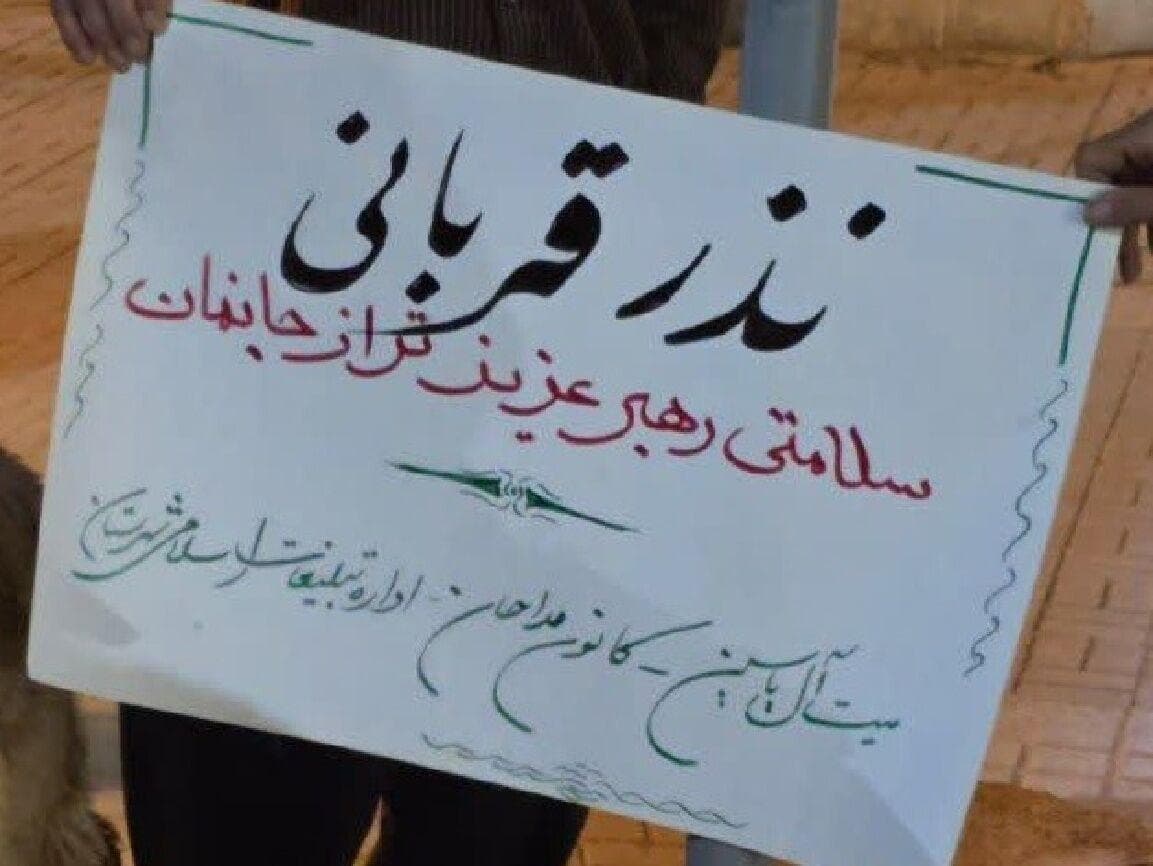 نذر قربانی
سلامتی رهبر عزیز تر از جانمان
بیت آل یاسین - کانون مداحان - اداره تبلیغات اسلامی شهرستان